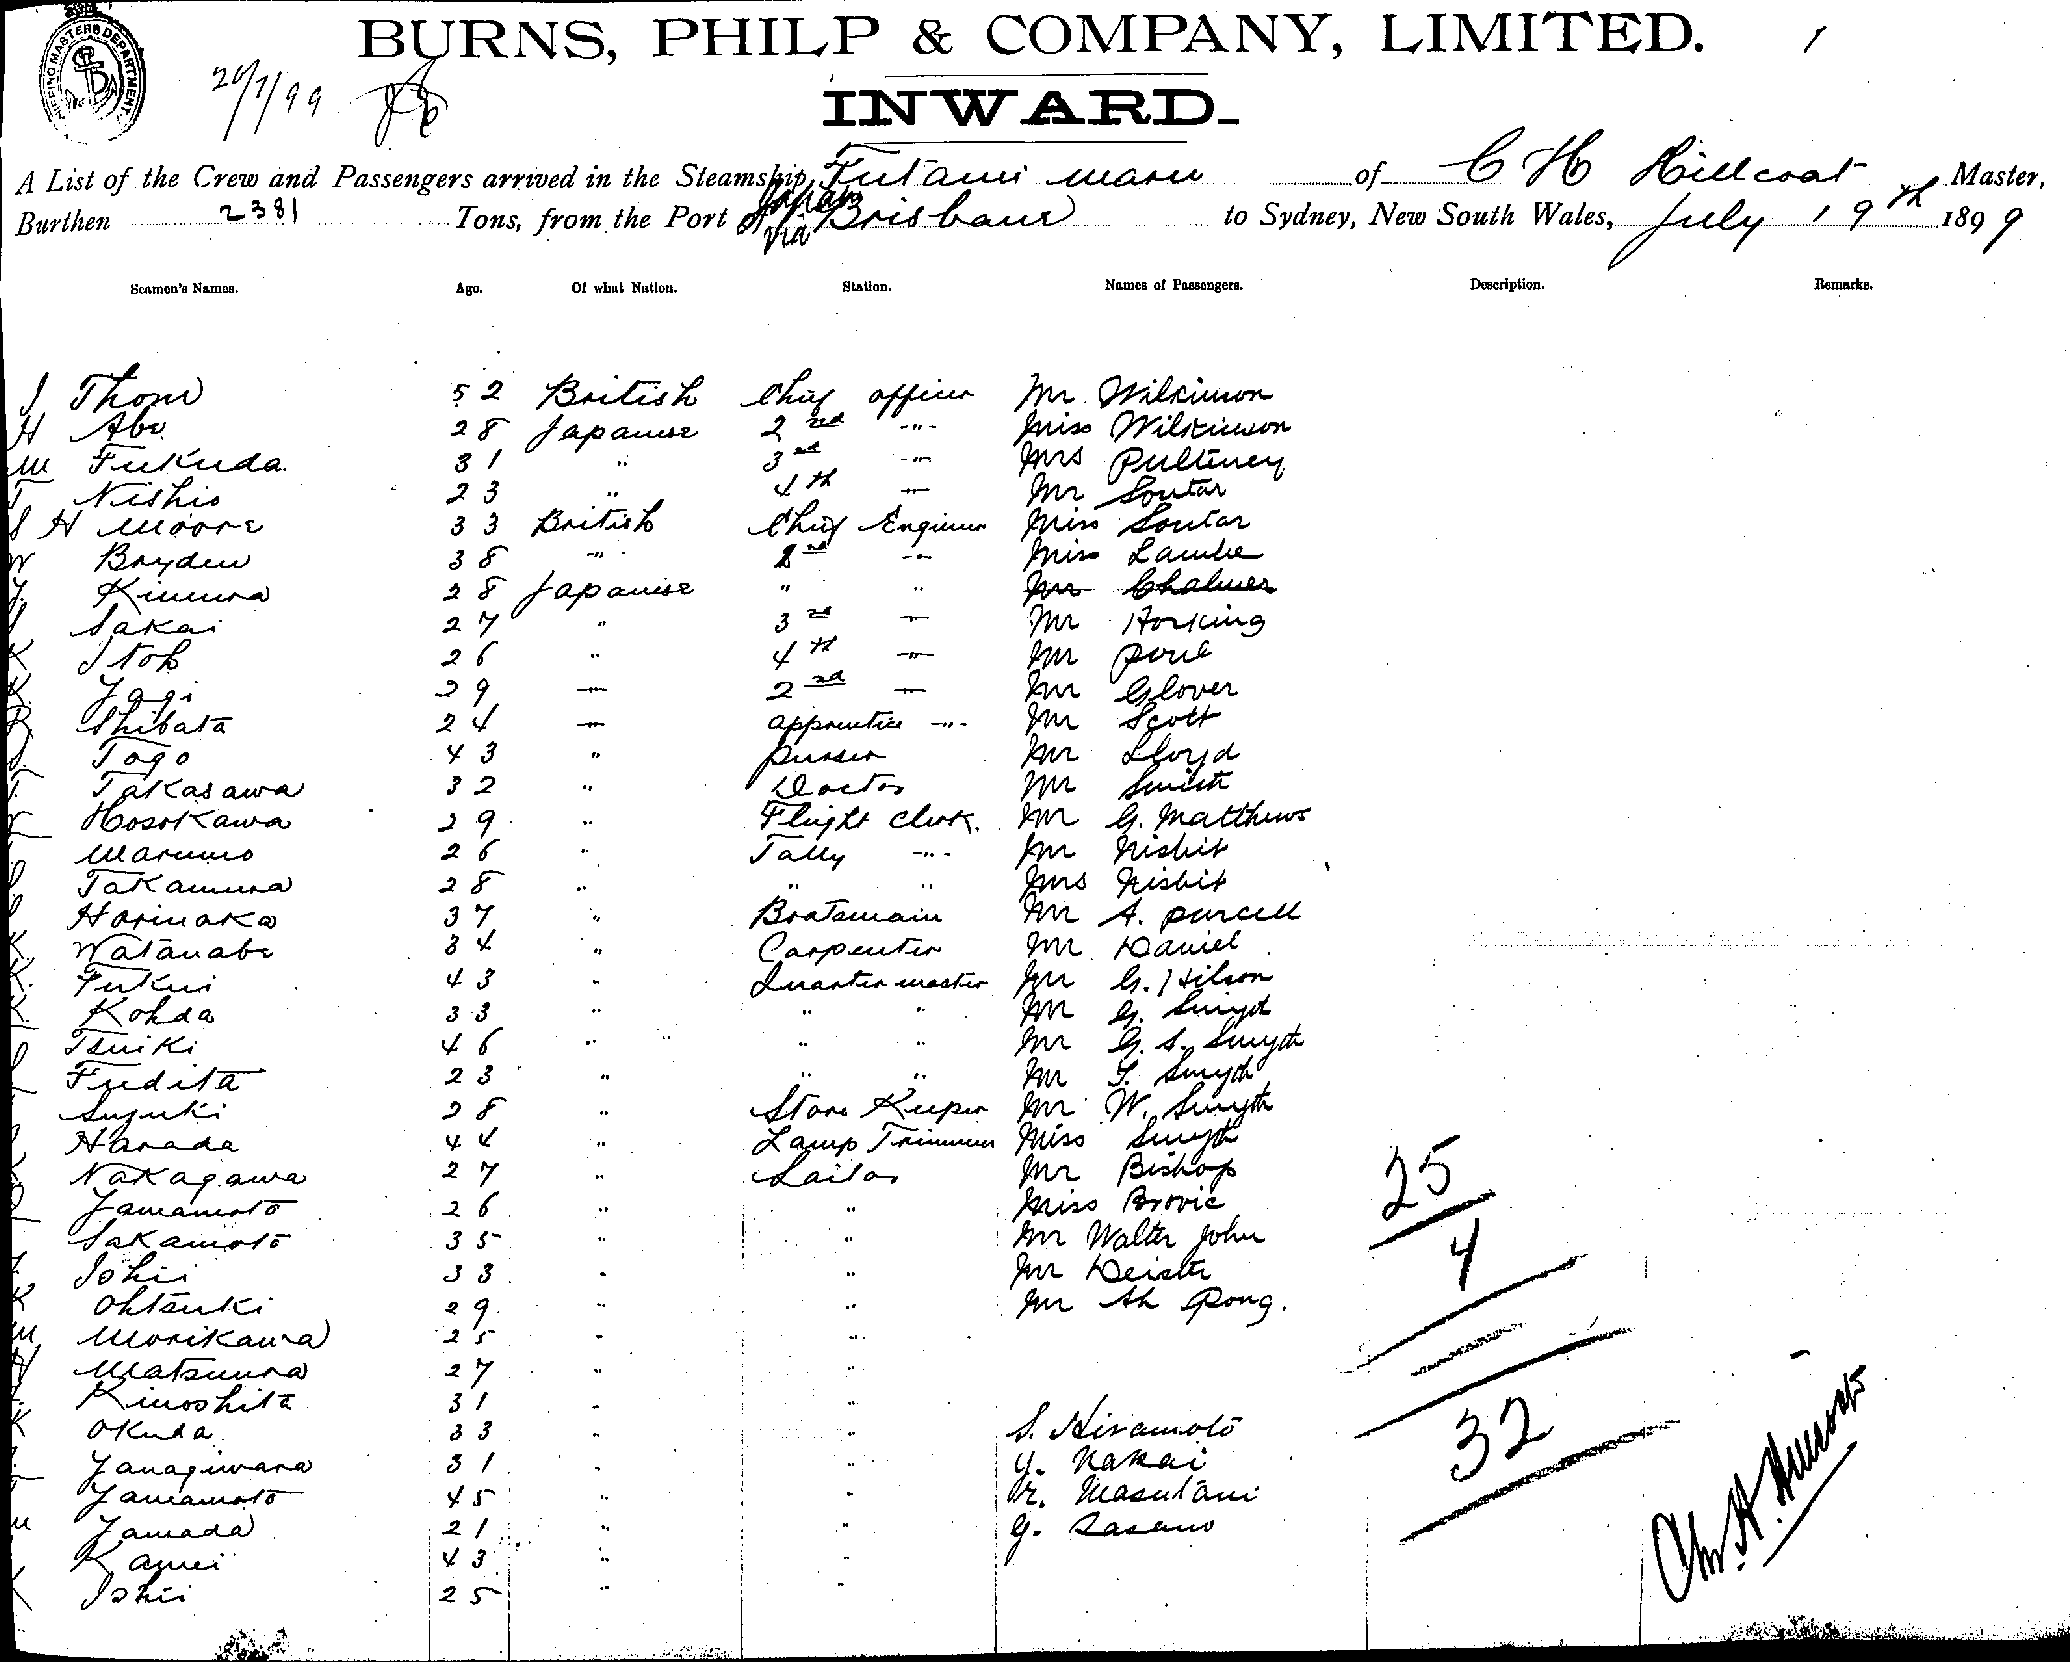 SHIPPING MASTERS DEPARTMENT
20/7/99
BURNS, PHILP & COMPANY, LIMITED.
INWARD
A List of the Crew and Passengers arrived in the Steamship Futami Maru of C H Hillcoat Master,
Burthen 2381 Tons, from the Port of Japan via Brisbane to Sydney, New South Wales, July 19th 1899
Seamen's Names. Age. Of what Nation. Station. Names of Passengers. Description. Remarks.
J Thom 52 British Chief officer Mr Wilkinson
H Abe 28 Japanese 2nd " Miss Wilkinson
M Fukuda 31 " 3rd " Mrs Pulteney
T Nishio 23 " 4th " Mr Soutar
S H Moore 33 British Chief Engineer Miss Soutar
W Bryden 38 " 2nd " Miss Lambe
Kimura 28 Japanese " " Mr Chalmer
Sakai 27 " 3rd " Mr Horking
K Itoh 26 " 4th " Mr
Yagi 29 " 2nd " Mr Glover
Shibata 24 " apprentice " Mr Scott
Togo 43 " purser Mr Lloyd
T Takasawa 32 " Doctor Mr Smith
Hosokawa 29 " Flight Clerk. Mr G. Matthews
Marumo 26 " Tally " Mr Nisbit
Takamura 28 " " " Mrs Nisbit
Horinaka 37 " Boatsmain Mr A. Purcell
K Watanabe 34 " Carpenter Mr Daniel
K. Fukui 43 " Quarter master Mr G. Hilson
K. Kohda 33 " " " Mr G. Smyth
Tsuiki 46 " " " Mr G. S. Smyth
Fudita 23 " " " Mr T. Smyth
Suzuki 28 " Store Keeper Mr W. Smyth
Harada 44 " Lamp Trimmer Miss Smyth
Nakagawa 27 " Sailor Mr Bishop
Yamamoto 26 " " Miss Brovie
Sakamoto 35 " " Mr Walter John
Ishii 33 " " Mr Deiste
K Ohtsuki 29 " " Mr Ah Gong.
M Morikawa 25 " "
H Matsuura 27 " "
Kinoshita 31 " "
K Okuda 33 " " S. Hiramoto
Yanagiwara 31 " " Y. Nakai
Yamamoto 45 " " Masutani
M Yamada 21 " " G. Sasano
Kamei 43 " "
K Ishii 25 " "
25
4
32